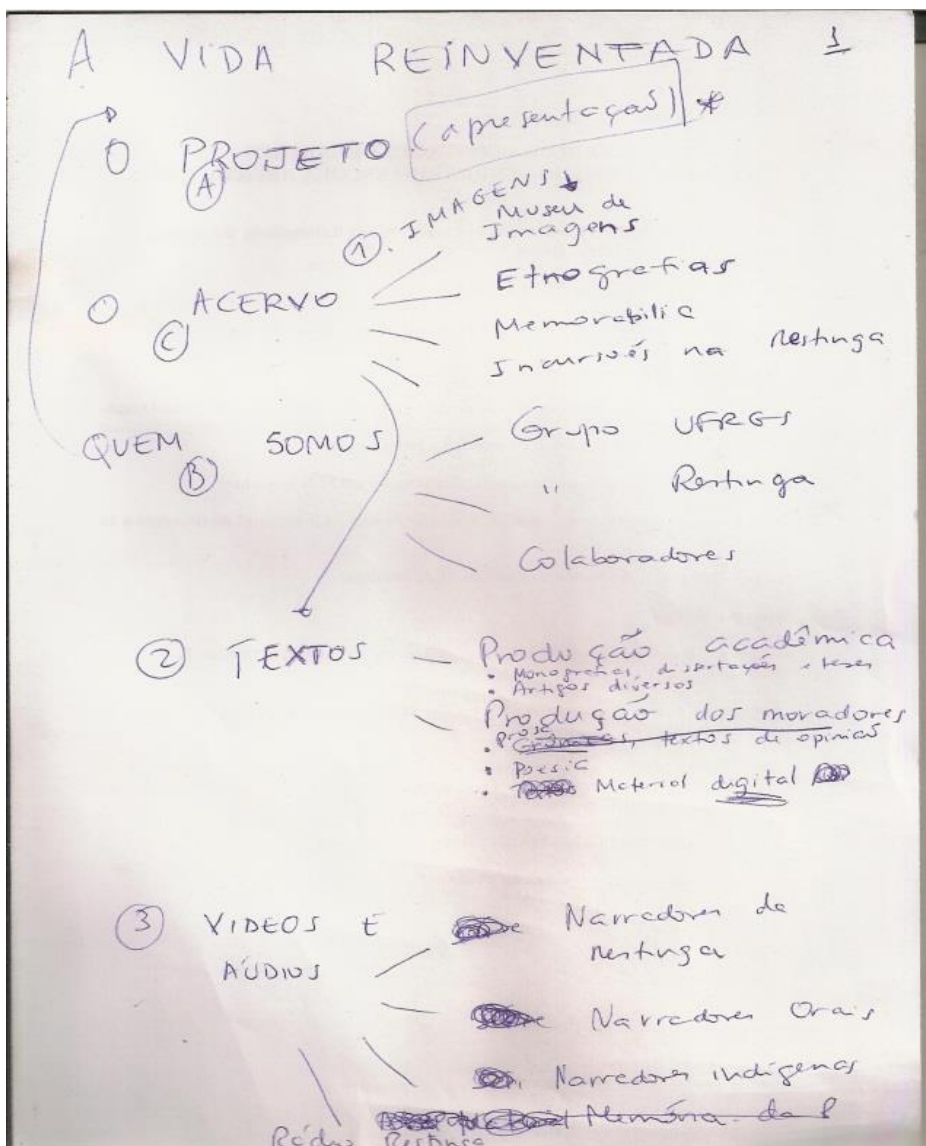 A VIDA REINVENTADA 1
O PROJETO (apresentação) *
A
1. IMAGENS
Museu de
Imagens
O ACERVO
C
Etnografias
Memorabilia
Incursões na Restinga
QUEM SOMOS
B
Grupo UFRGS
" Restinga
Colaboradores
2 TEXTOS
Produção acadêmica
• Monografias, dissertações e teses
• Artigos diversos
Produção dos moradores
Prosa
• Crônicas, textos de opinião
• Poesia
• Material digital
3 VIDEOS E
ÁUDIOS
Narradores da
Restinga
Narradores Orais
Narradores indígenas
Memória da R
Rádio Restinga